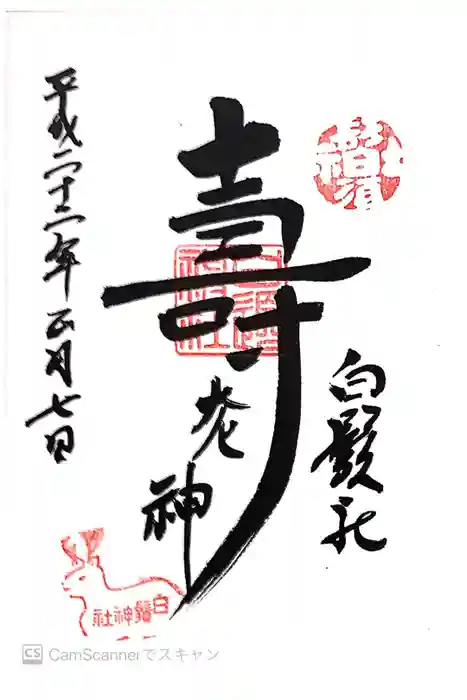 白鬚社
壽老神
平成二十二年正月七日
白鬚神社
白鬚神社
CS CamScannerでスキャン